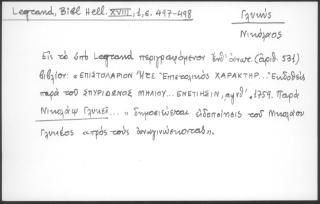 Legrand, Bibl Hell. XVIII, 1, σ. 497-498
Γλυκύς
Νικόλαος
Εἰς τὸ ὑπὸ Legrand περιγραφόμενον ὑπ' ἀριθ. (ἀριθ. 531)
βιβλίον: «ΕΠΙΣΤΟΛΑΡΙΟΝ Ἤτε Ἐπιστολικὸς ΧΑΡΑΚΤΗΡ... Ἐκδοθεὶς
παρὰ τοῦ ΣΠΥΡΙΔΩΝΟΣ ΜΗΛΙΟΥ... ΕΝΕΤΙΗΣΙΝ, αψνθ'. 1759. Παρὰ
Νικολάῳ Γλυκεῖ...» δημοσιεύεται εἰδοποίησις τοῦ Νικολάου
Γλυκέος «πρὸς τοὺς ἀναγινώσκοντας».